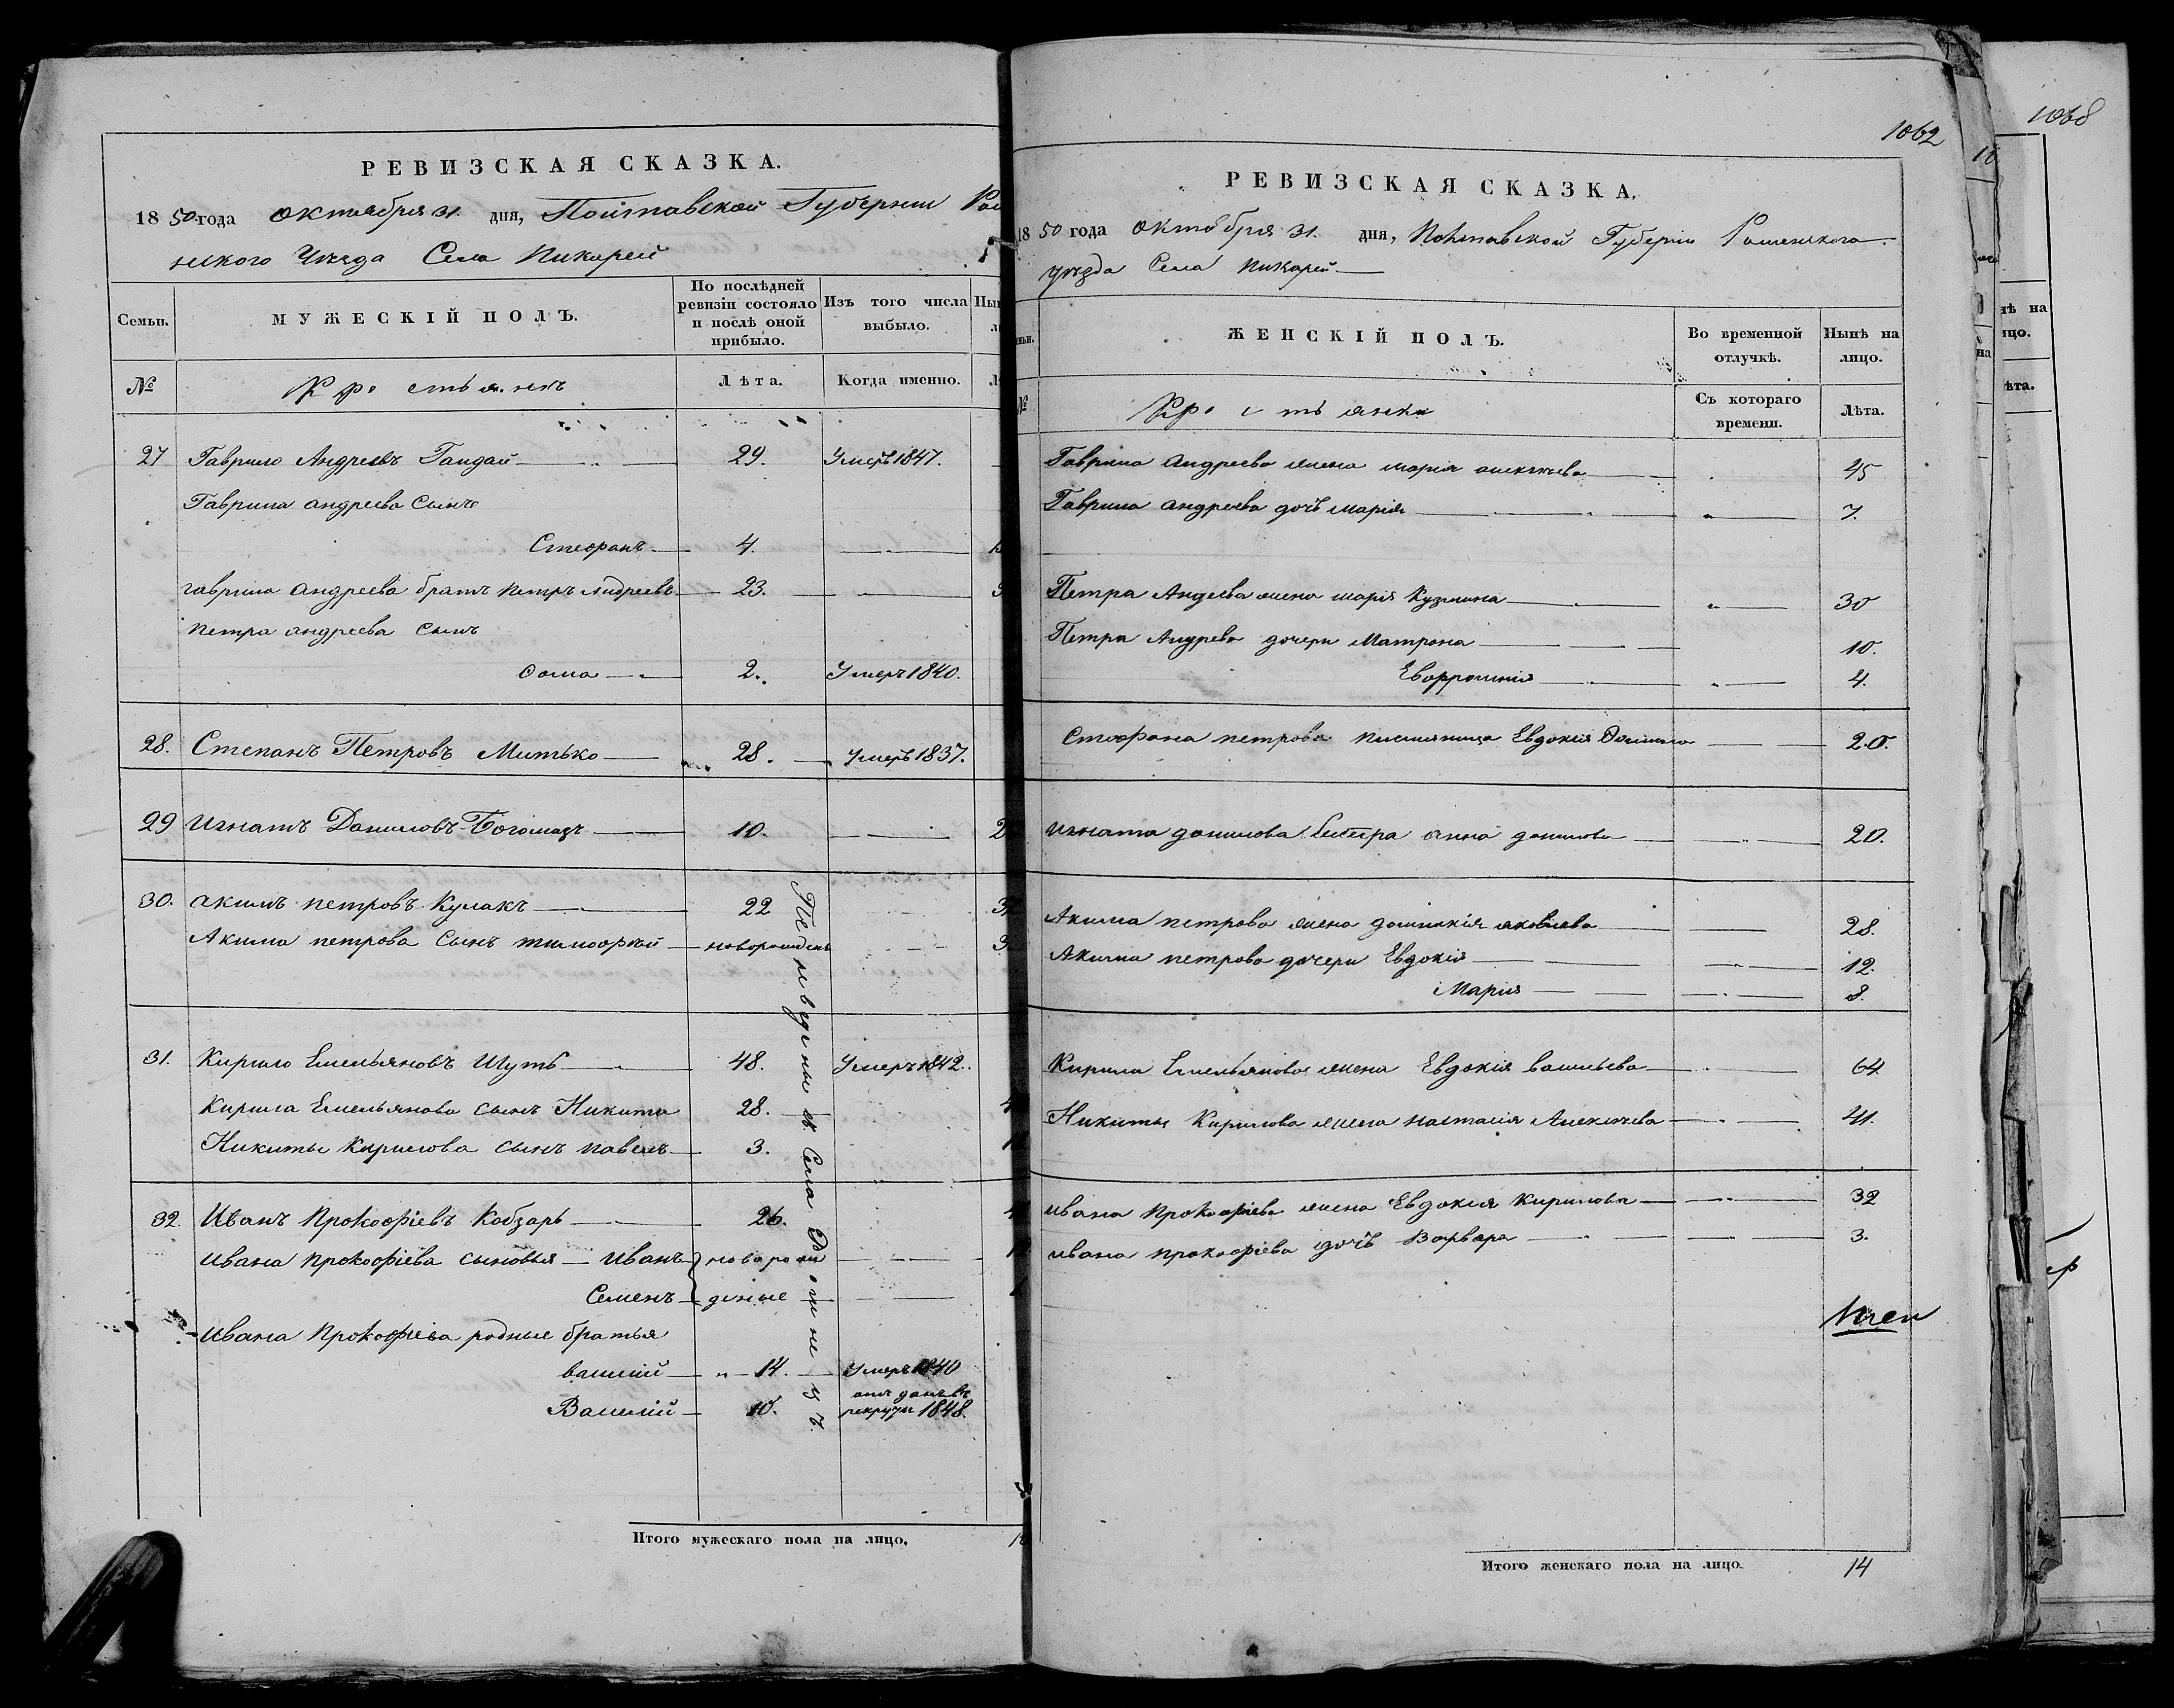 РЕВИЗСКАЯ СКАЗКА.
1850 года октября 31. дня, Полтавской Губернии
нского Уезда Села Пикарей
Семьи.
МУЖЕСКІЙ ПОЛЪ.
По послѣдней ревизіи состояло и послѣ оной прибыло.
Изъ того числа выбыло.
№
Крестьянъ
Лѣта.
Когда именно.
27 Гаврило Андреевъ Гандай 29. Умеръ 1847.
Гаврила андреева Сынъ
Стефанъ 4.
гаврила андреева братъ петръ андреевъ 23.
петра андреева Сынъ
Фома 2. Умеръ 1840.
28. Степанъ Петровъ Митько 28. Умеръ 1837.
29 Игнатъ Даниловъ Богомазъ 10.
30. акимъ петровъ Кулакъ 22
Акима петрова Сынъ тимофѣй новорожденъ
31. Кирило Емельяновъ Шутъ 48. Умеръ 1842.
Кирила Емельянова сынъ Никита 28.
Никиты Кирилова сынъ павелъ 3.
32. Иванъ Прокофіевъ Кобзарь 26.
Ивана прокофіева сыновья Иванъ новорож
Семенъ деные
Ивана Прокофіева родные братья
василій 14. Умеръ 1840
Василій 10. отданъ въ рекруты 1848.
Переведены из Села
Итого мужескаго пола на лицо.
1062
РЕВИЗСКАЯ СКАЗКА.
1850 года октября 31. дня, Полтавской Губерніи Роменского
уѣзда Села пикарей
ЖЕНСКІЙ ПОЛЪ.
Во временной отлучкѣ.
Нынѣ на лицо.
№
Крестьянки
Съ котораго времени.
Лѣта.
Гаврила андреева жена марія алексѣева 45
Гаврила андреева дочь марія 7.
Петра Андеева жена марія Кузмина 30
Петра Андрева дочери Матрона 10.
Евфросинія 4.
Стефана петрова племяница Евдокія 20.
Игната данилова Сестра анна данилова 20.
Акима петрова жена домникія яковлева 28.
Акима петрова дочери Евдокія 12.
Марія 8.
Кирила Емельянова жена Евдокія васильева 64
Никиты Кирилова жена настасія Алексѣева 41.
ивана Прокофіева жена Евдокія Кирилова 32
ивана прокофіева дочь Варвара 3.
Итого женскаго пола на лицо. 14
1068